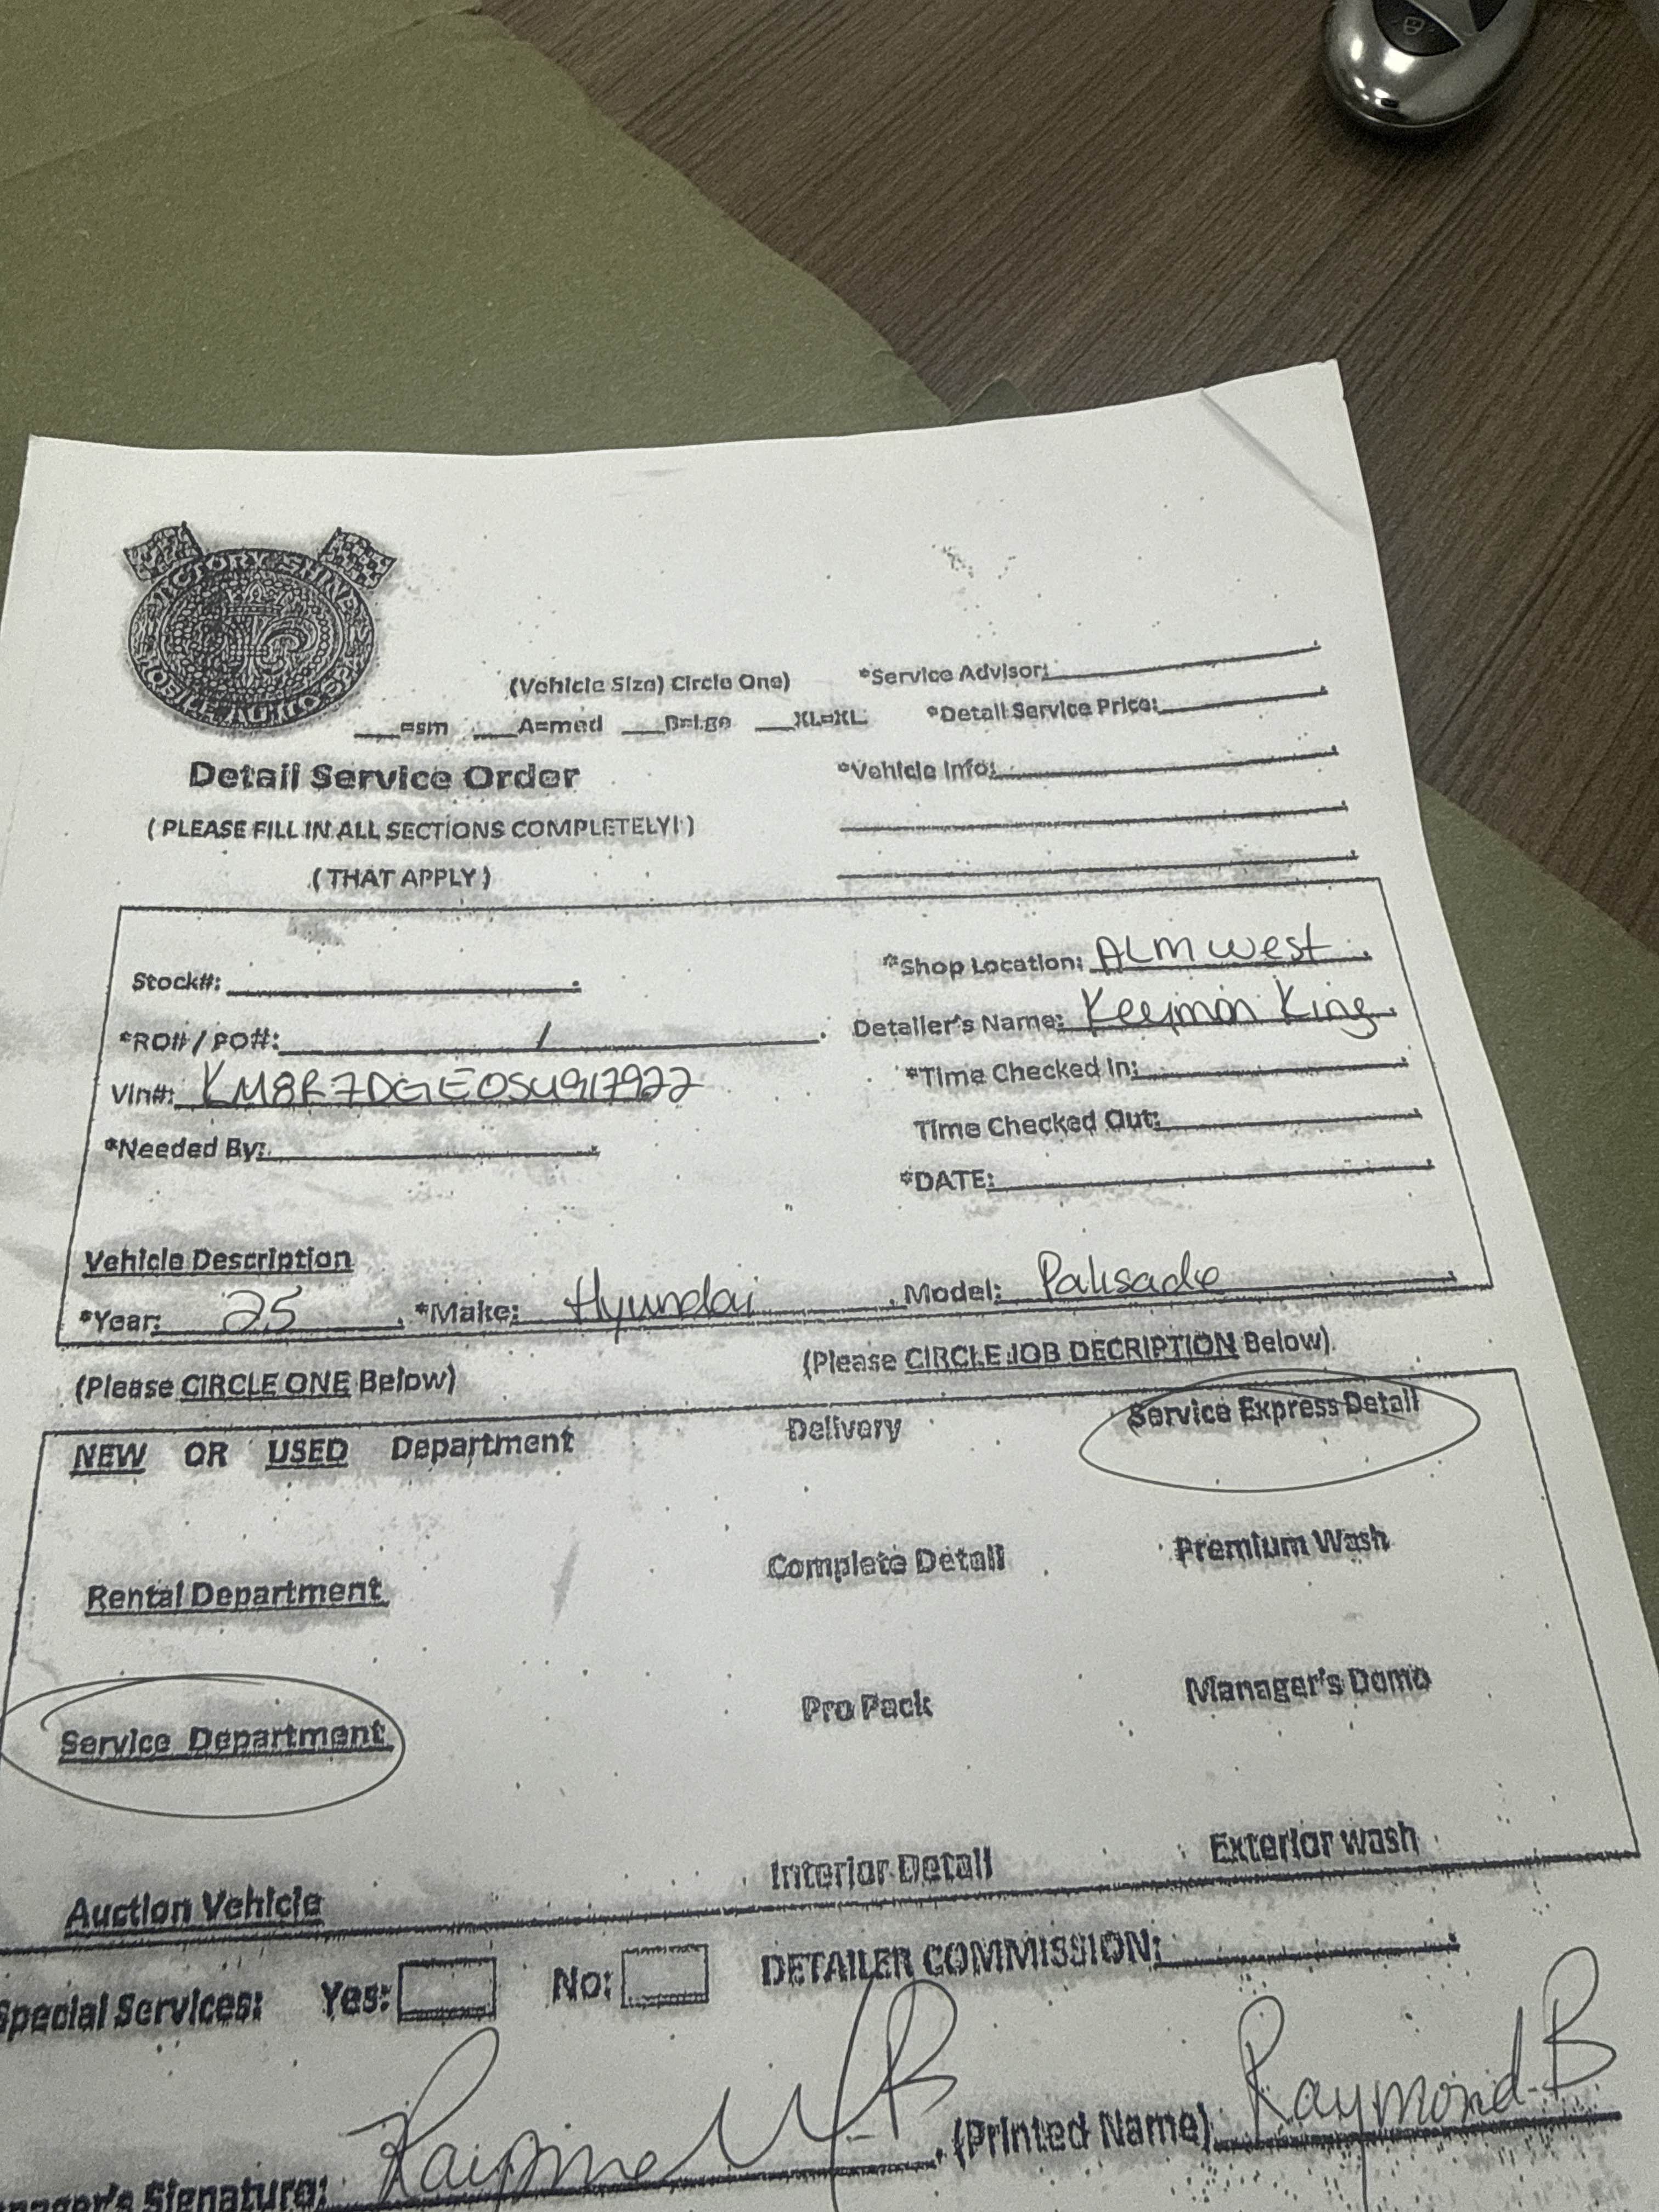 VICTORY SHINE
MOBILE AUTO SPA
(Vehicle Size) Circle One)
*Service Advisor:
___=sm ___A=med ___B=Lge ___XL=XL
*Detail Service Price:
Detail Service Order
*Vehicle Info:
( PLEASE FILL IN ALL SECTIONS COMPLETELY! )
( THAT APPLY )
Stock#:
*Shop Location: ALM West
*RO# / PO#: /
Detailer's Name: Keymon King
Vin#: KM8R7DGE0SU917922
*Time Checked In:
Time Checked Out:
*Needed By:
*DATE:
Vehicle Description
*Year: 25 . *Make: Hyundai . Model: Palisade
(Please CIRCLE ONE Below)
(Please CIRCLE JOB DECRIPTION Below)
NEW OR USED Department
Delivery
Service Express Detail
Rental Department
Complete Detail
Premium Wash
Service Department
Pro Pack
Manager's Demo
Auction Vehicle
Interior Detail
Exterior wash
Special Services: Yes: No: DETAILER COMMISSION:
nager's Signature: . (Printed Name) Raymond B